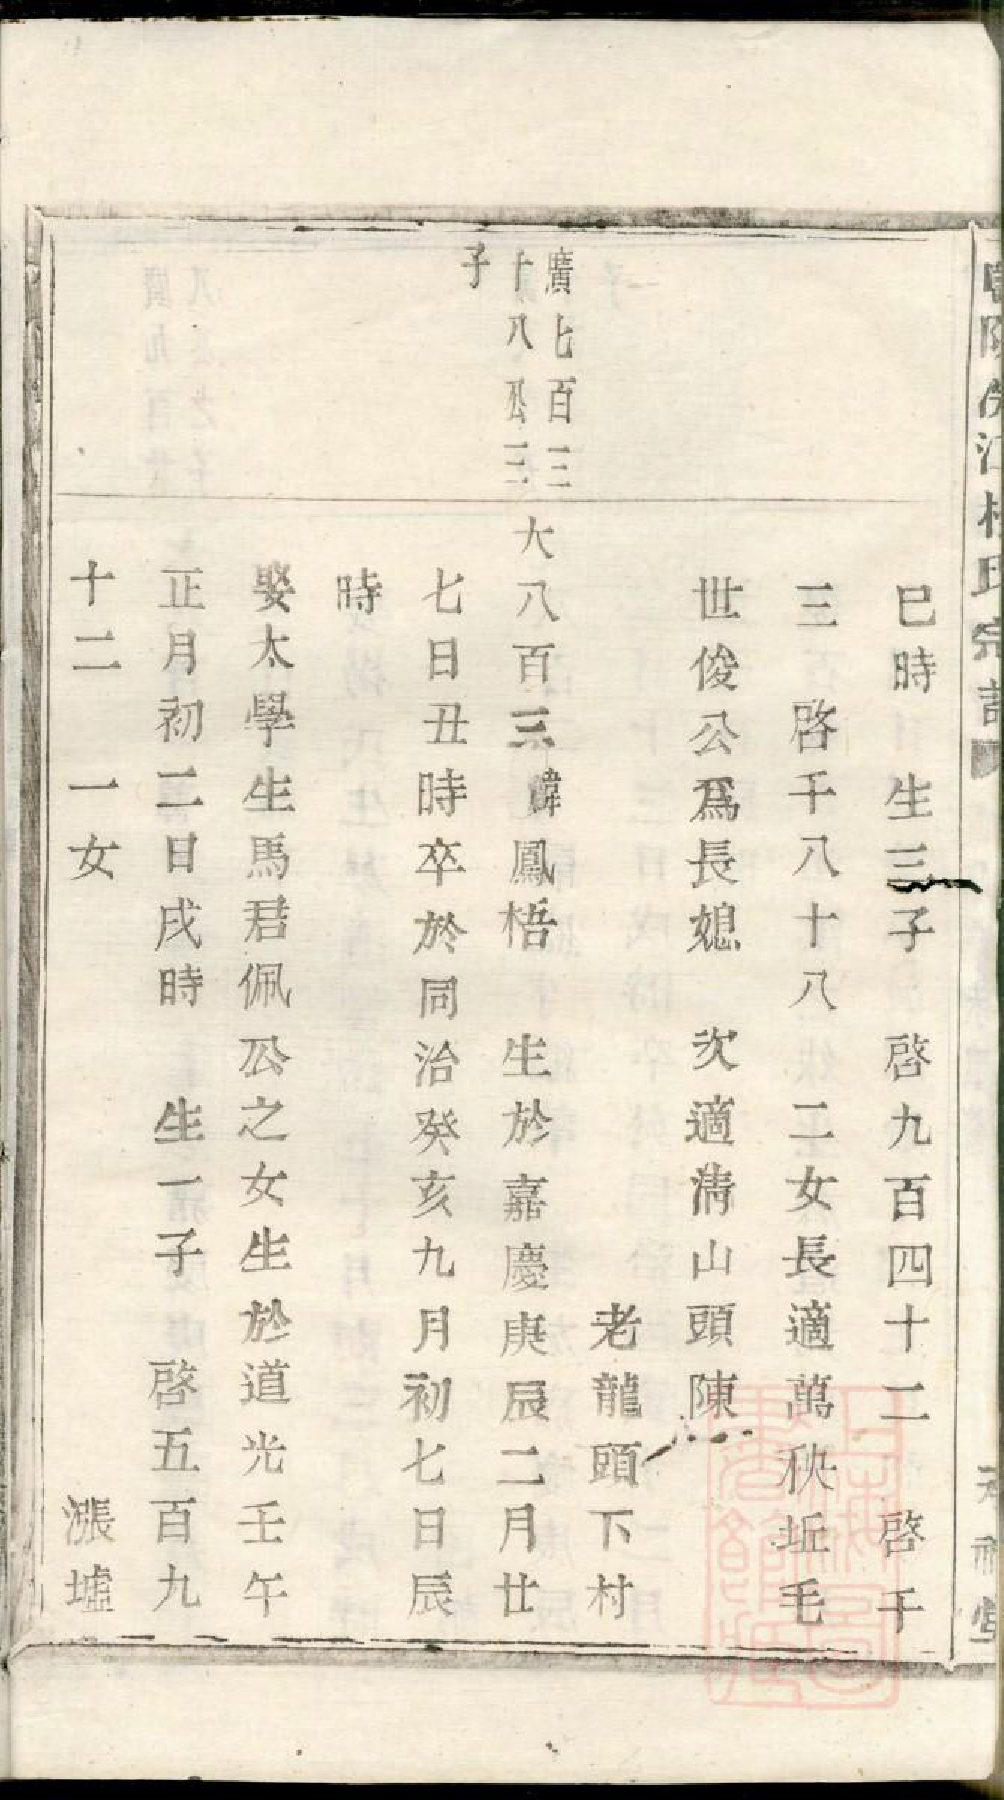 氏宗譜
巳時　生三子　啓九百四十二　啓千
三　啓千八十八　二女長適萬秧坵毛
世俊公爲長媳　次適淸山頭陳
老龍頭下村
廣七百三
十八公三
子
大八百三　諱鳳梧　生於嘉慶庚辰二月廿
七日丑時卒於同治癸亥九月初七日辰
時
娶太學生馬君佩公之女生於道光壬午
正月初二日戌時　生一子　啓五百九
十二　一女　漲墟